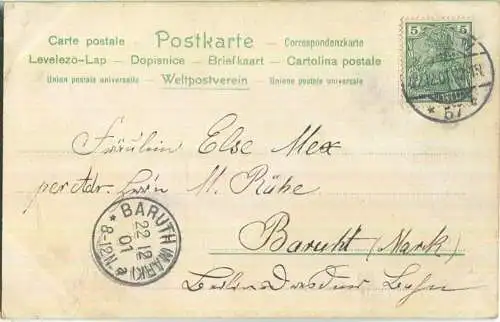 Carte postale — Postkarte — Correspondenzkarte
Levelezö-Lap — Dopisnice — Briefkaart — Cartolina postale
Union postale universelle — Weltpostverein — Unione postale universale
5 5
* 57
Fräulein Else Mex
per Adr. Herrn M. Rühe
Baruht (Mark)
Berlin Dresdener Bahn
* BARUTH (MARK) *
22 12
01
8-12V.